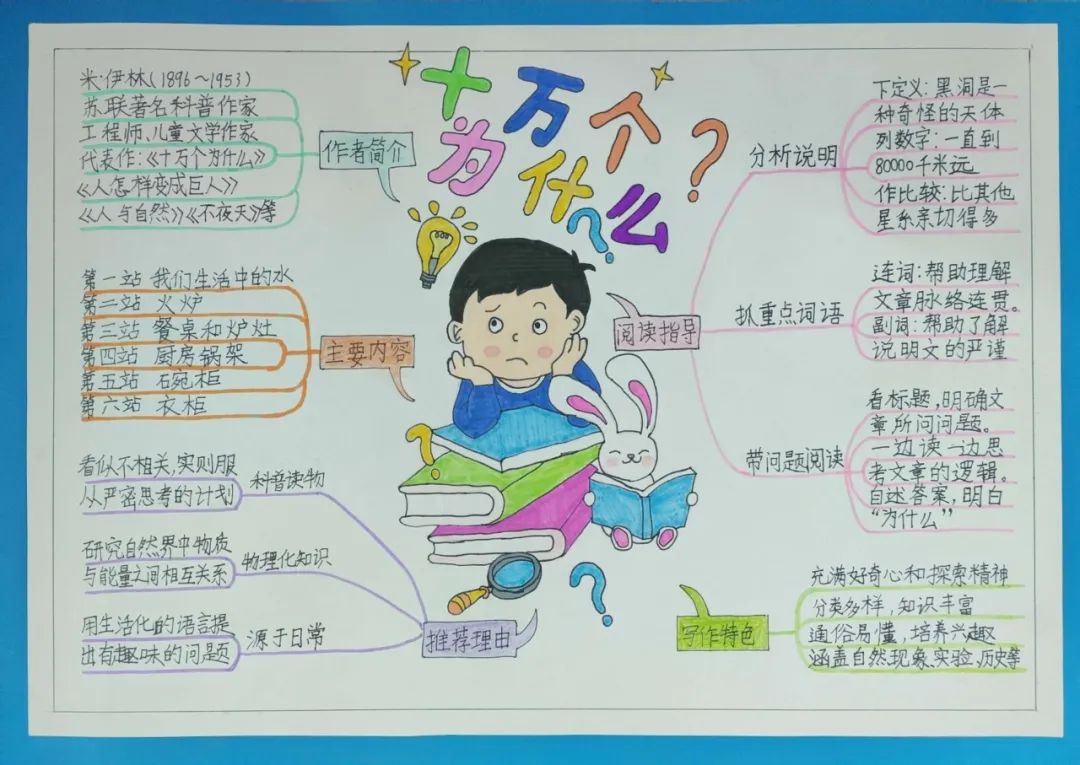 十万个
为什么?
作者简介
米·伊林(1896~1953)
苏联著名科普作家
工程师、儿童文学作家
代表作:《十万个为什么》
《人怎样变成巨人》
《人与自然》《不夜天》等
主要内容
第一站 我们生活中的水
第二站 火炉
第三站 餐桌和炉灶
第四站 厨房锅架
第五站 碗柜
第六站 衣柜
推荐理由
科音读物
看似不相关,实则服
从严密思考的计划
物理化知识
研究自然界中物质
与能量之间相互关系
源于日常
用生活化的语言提
出有趣味的问题
阅读指导
分析说明
下定义:黑洞是一
种奇怪的天体
列数字:一直到
80000千米远
作比较:比其他
星系亲切得多
抓重点词语
连词:帮助理解
文章脉络连贯。
副词:帮助了解
说明文的严谨
带问题阅读
看标题,明确文
章所问问题。
一边读一边思
考文章的逻辑。
自述答案,明白
“为什么”
写作特色
充满好奇心和探索精神
分类多样,知识丰富
通俗易懂,培养兴趣
涵盖自然现象、实验、历史等